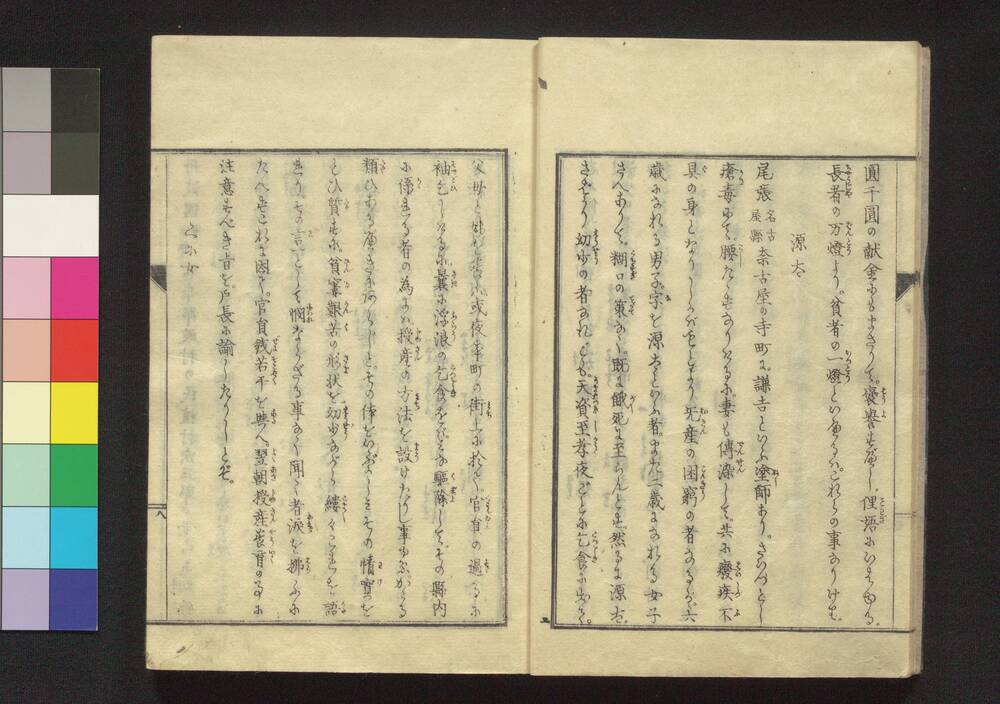 圓千圓の献金にもまさりて。褒誉すべし。俚語にいはゆる。
長者の万燈より。貧者の一燈といへるハ。これらの事なりけむ。
源太
尾張名古屋縣奈古屋の寺町に。謙吉といふ塗師あり。さいつとし
瘡毒にて。腰たゝずなりけるに。妻も傳染して。共に癈疾不
具の身となりしかバもとより无産の困窮の者なるが。六
歳になれる男子。字を源太といふ者。また二歳になれる女子
さへありて。糊口の策なく。既に餓死に至らんとす。然るに源太。
さばかり幼少の者なれども。天資至孝夜ごとに乞食に出て。
父母と妹を養ひ。或夜本町の街上に於て。官員の過るに
袖乞しけるに。曩に浮浪の乞食をばみな駆除して。その縣内
に係れる者の為にハ。授産の方法を設けたりし事ゆゑ。かゝる
類ひあるべきにあらじと。その体をいぶかしミその情實を
とひ質すに。貧窶艱苦の形状を幼少ながら縷々これを語
れり。その言いとも憫なりける事なく聞く者涙を拂ふに
たへず。これに因り。官員銭若干を與へ。翌朝授産長官の為に
注意すべき旨を。戸長に諭したりしとぞ。
八